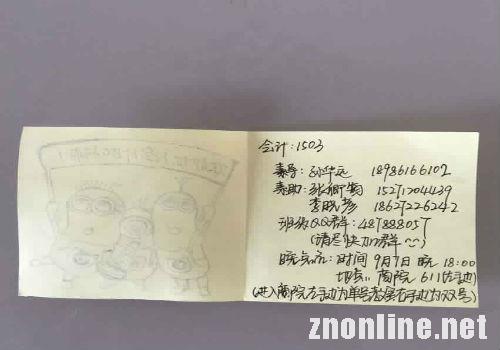 会计:1503
素导:孙华远 18986166102
素助:张 15271204439
李晓彦 18627226242
班级QQ群:487888057
(请尽快加群~~)
晚点名:时间 9月7日 晚 18:00
地点:商院 611(左手边)
(进入商院左手边为单号教室右手边为双号)
znonline.net